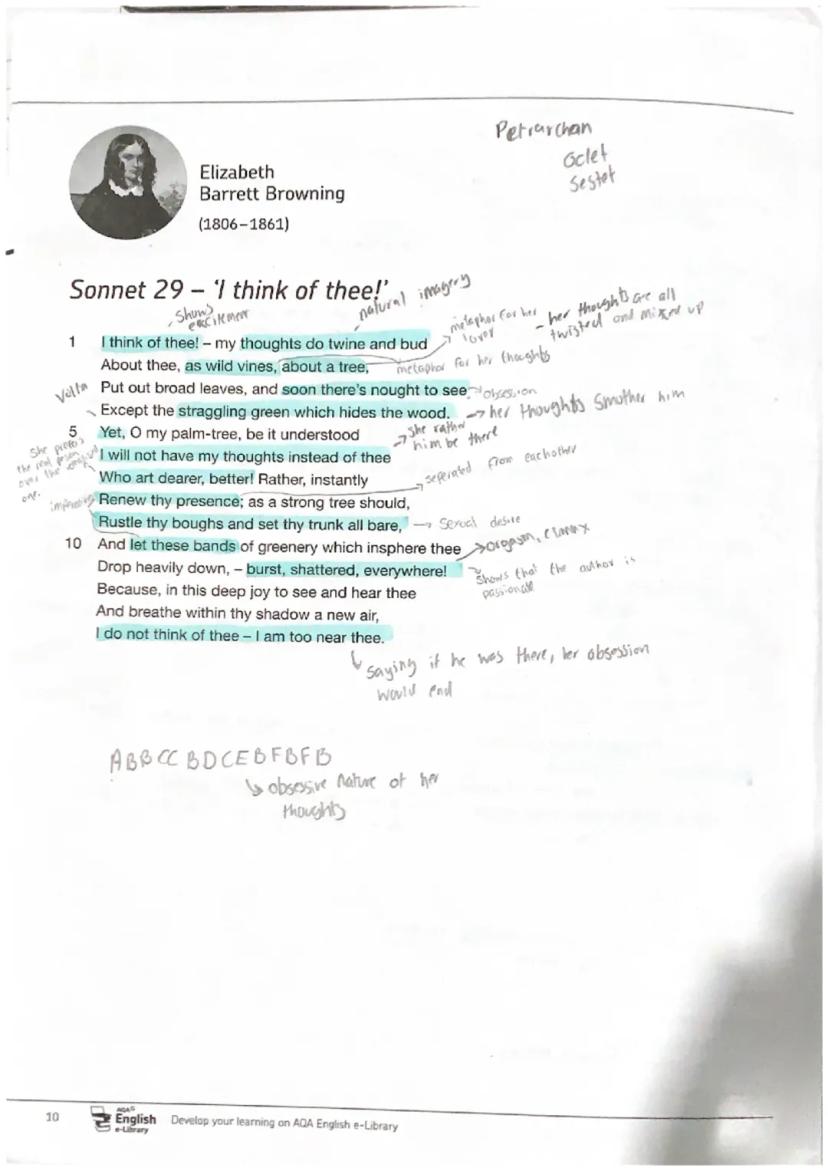 Petrarchan
Octet
Sestet
Elizabeth
Barrett Browning
(1806–1861)
Sonnet 29 – 'I think of thee!'
natural imagery
shows
excitement
metaphor for her
lover
– her thoughts are all
twisted and mixed up
1 I think of thee! – my thoughts do twine and bud
About thee, as wild vines, about a tree,
metaphor for her thoughts
Volta
Put out broad leaves, and soon there's nought to see
obsession
Except the straggling green which hides the wood.
→ her thoughts smother him
5 Yet, O my palm-tree, be it understood
→ she rather
him be there
I will not have my thoughts instead of thee
She prefers
the real
over the
one.
Who art dearer, better! Rather, instantly
seperated from eachother
imperative
Renew thy presence; as a strong tree should,
Rustle thy boughs and set thy trunk all bare,
→ Sexual desire
10 And let these bands of greenery which insphere thee
→ orgasm, climax
Drop heavily down, – burst, shattered, everywhere!
shows that the author is
passionate
Because, in this deep joy to see and hear thee
And breathe within thy shadow a new air,
I do not think of thee – I am too near thee.
saying if he was there, her obsession
would end
ABBCCBDCEBFBFB
obsessive nature of her
thoughts
10
AQA
English
e-Library
Develop your learning on AQA English e-Library